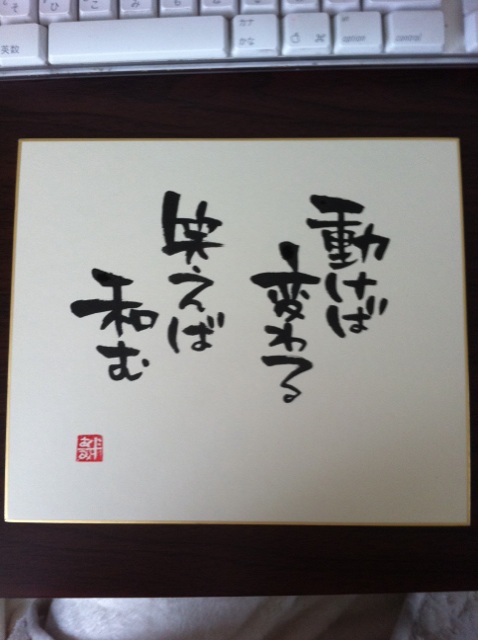 動けば
変わる
笑えば
和む
英数
カナ
かな
option
control